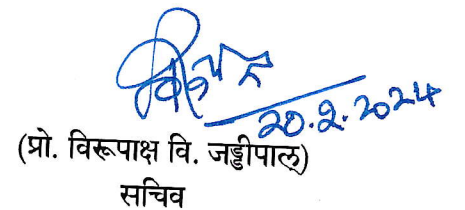 विरूपाक्ष
20.2.2024
(प्रो. विरूपाक्ष वि. जड्डीपाल्)
सचिव